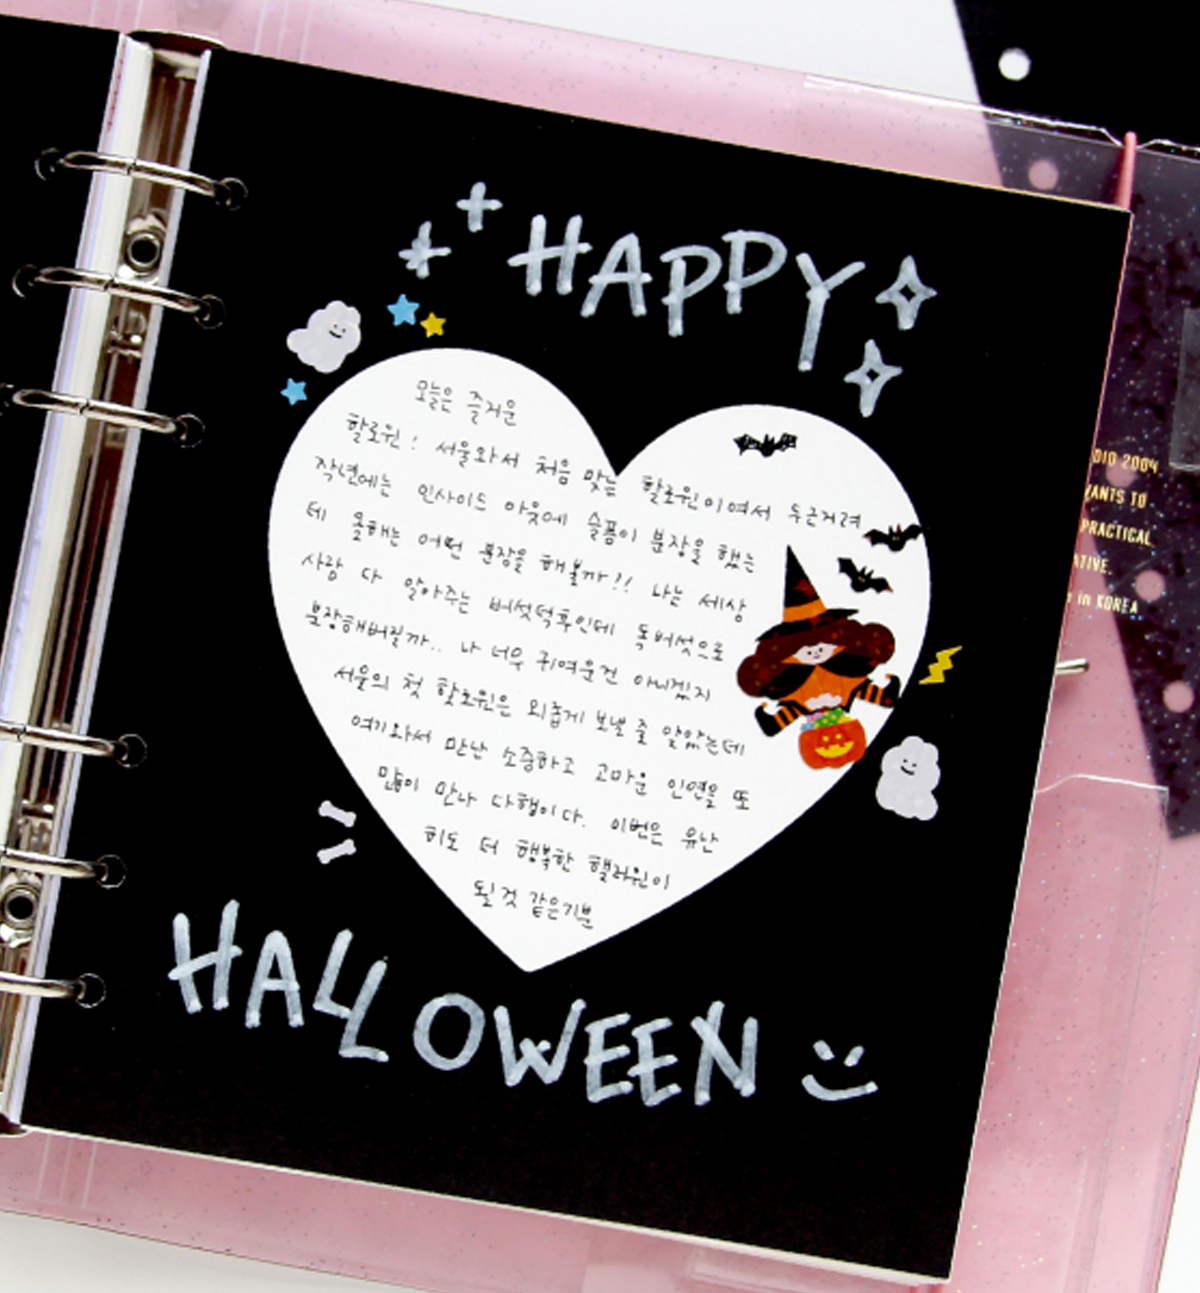 HAPPY
오늘은 즐거운
할로윈! 서울와서 처음 맞는 할로윈이여서 두근거려
작년에는 인사이드 아웃에 슬픔이 분장을 했는
데 올해는 어떤 분장을 해볼까!! 나는 세상
사람 다 알아주는 버섯덕후인데 독버섯으로
분장해버릴까.. 나 너무 귀여운건 아니겠지
서울의 첫 할로윈은 외롭게 보낼 줄 알았는데
여기와서 만난 소중하고 고마운 인연을 또
많이 만나 다행이다. 이번은 유난
히도 더 행복한 핼러윈이
될 것 같은기분
HALLOWEEN
DIO 2004
WANTS TO
PRACTICAL
ATIVE.
in KOREA